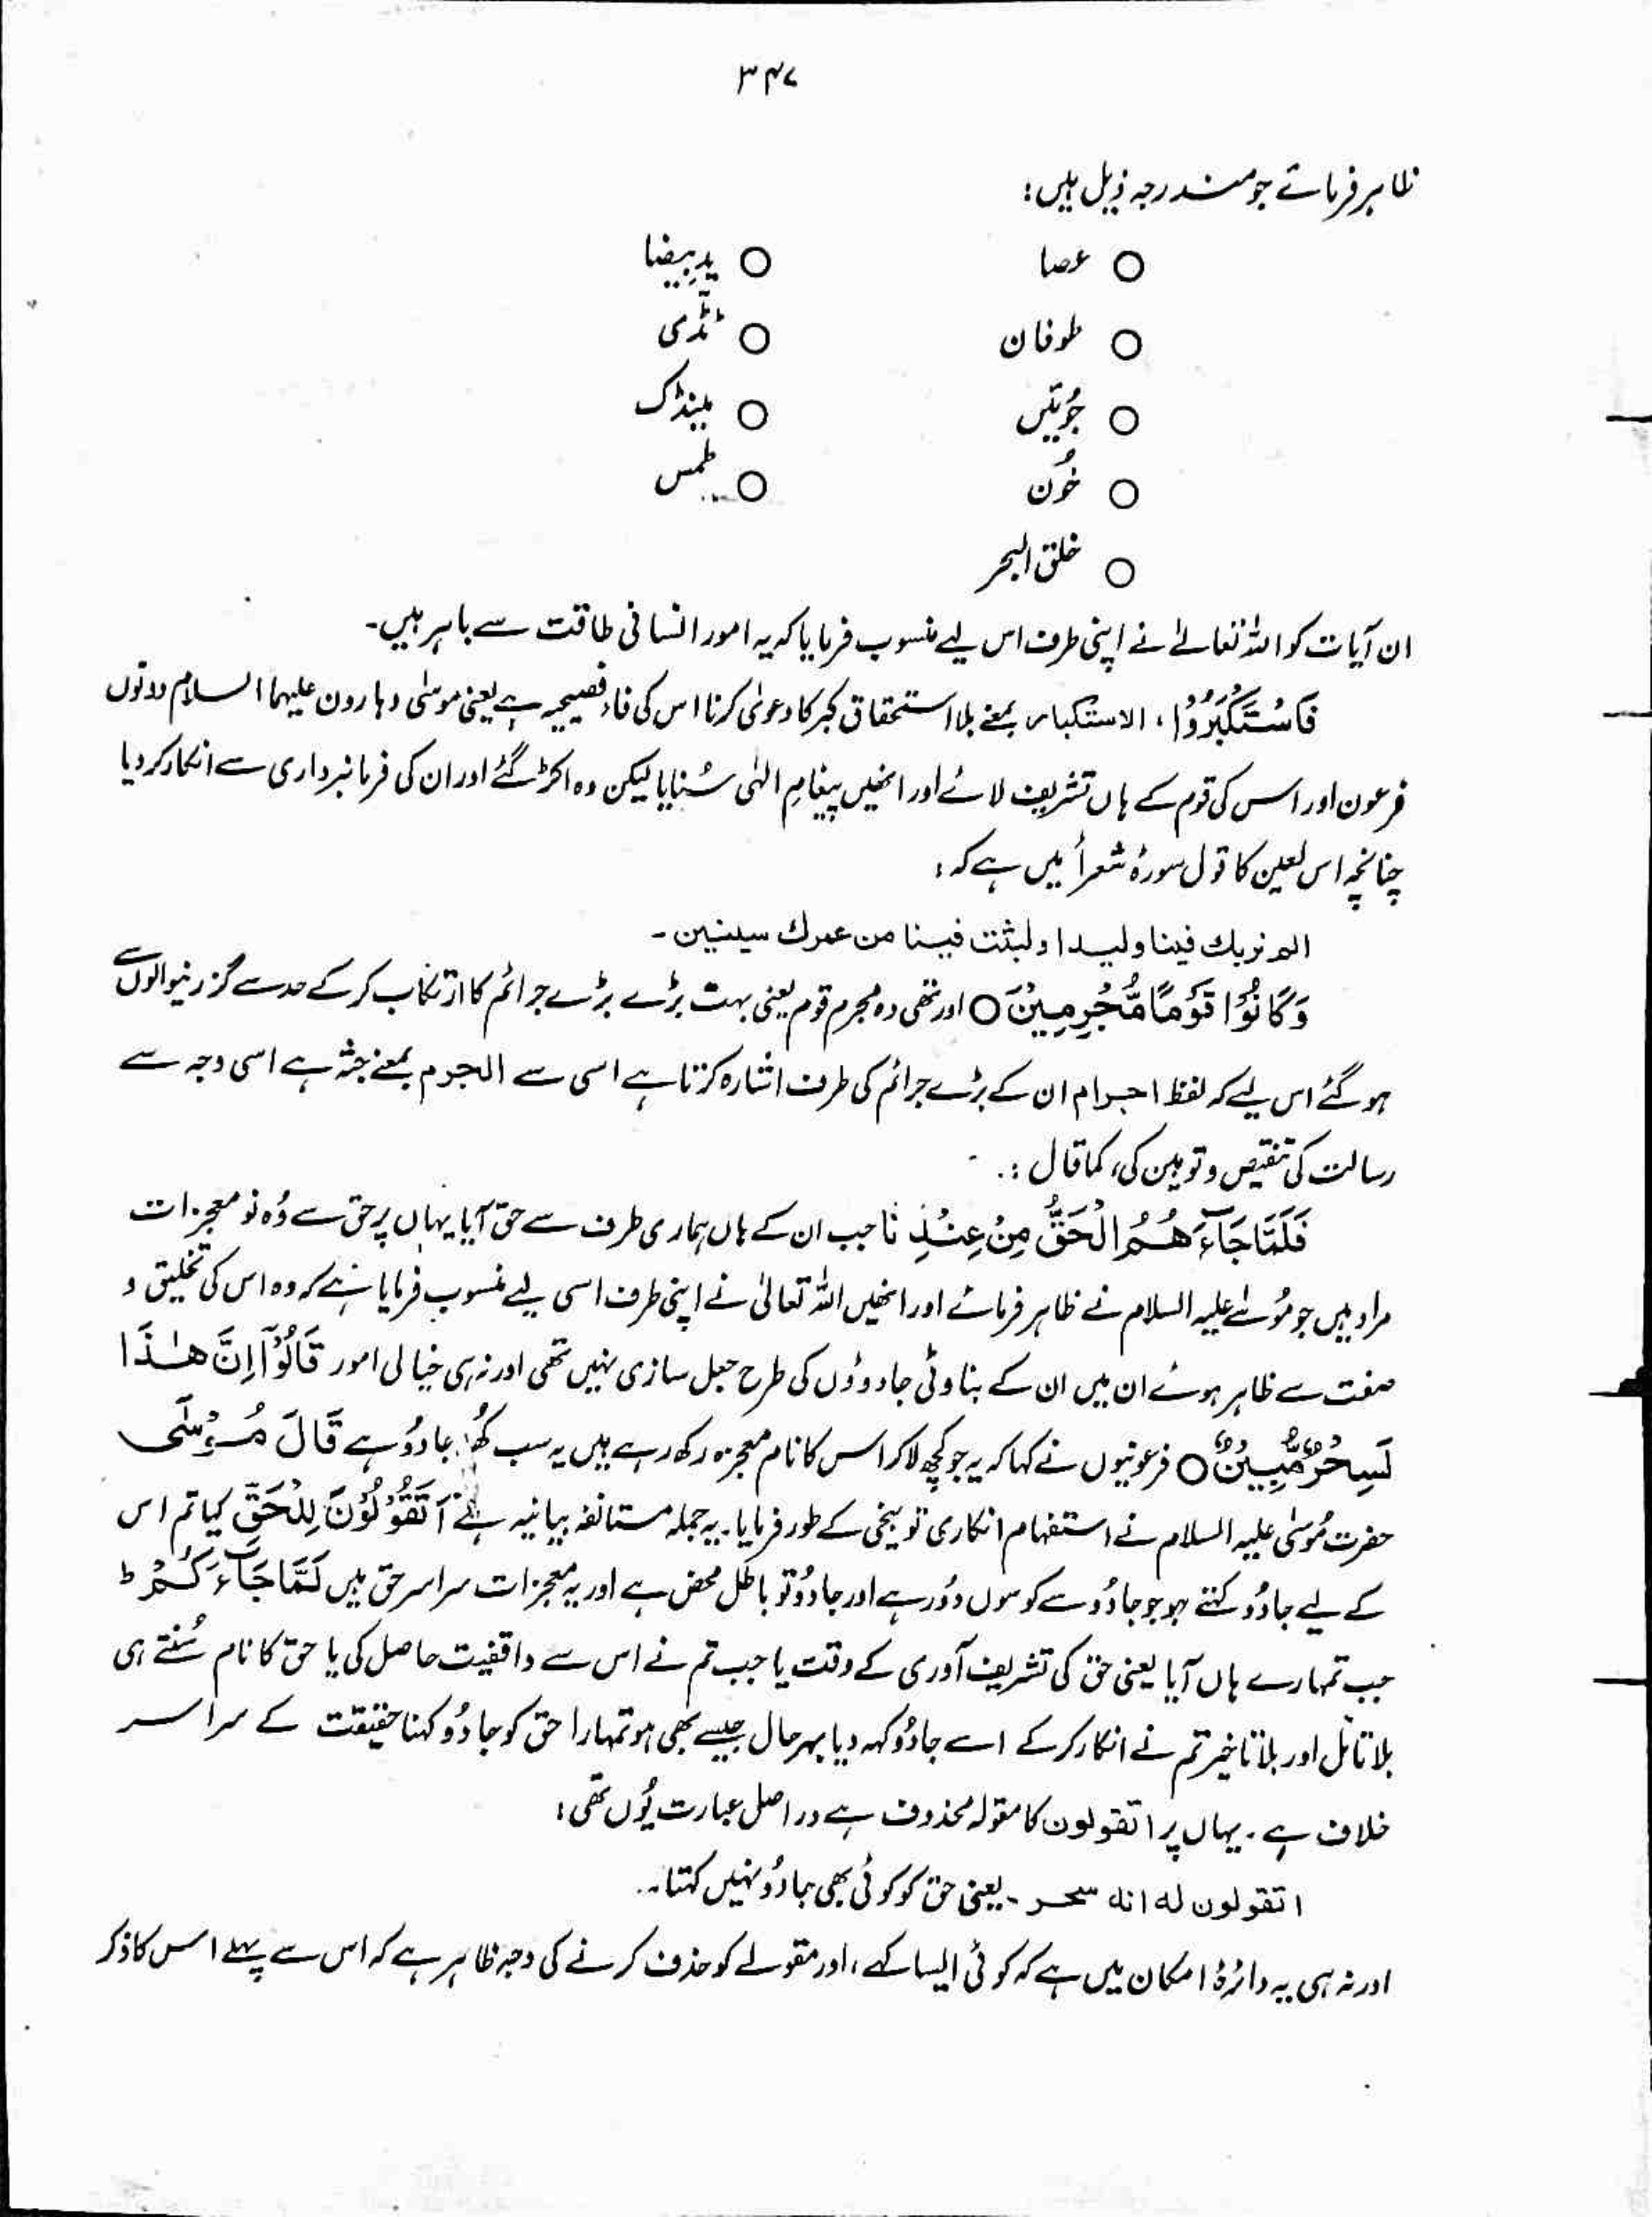 ۳۴۷
ظاہر فرمائے جو مندرجہ ذیل ہیں:
○ عصا ○ یدِبیضا
○ طوفان ○ ٹڈی
○ جُوئیں ○ مینڈک
○ خُون ○ طمس
○ خلق البحر
ان آیات کو اللہ تعالےٰ نے اپنی طرف اس لیے منسوب فرمایا کہ یہ امور انسانی طاقت سے باہر ہیں۔
فَاسْتَكْبَرُوْا، الاستکبار بمعنے بلا استحقاق کبر کا دعویٰ کرنا اس کی فاء فصیحیہ ہے یعنی موسٰی و ہارون علیہما السلام دونوں
فرعون اور اس کی قوم کے ہاں تشریف لائے اور انھیں پیغامِ الٰہی سُنایا لیکن وہ اکڑ گئے اور ان کی فرمانبرداری سے انکار کر دیا
چنانچہ اس لعین کا قول سورۂ شعرأ میں ہے کہ:
الم نربك فینا ولیدا ولبثت فینا من عمرك سنین۔
وَكَانُوْا قَوْمًا مُّجْرِمِيْنَ ○ اور تھی وہ مجرم قوم یعنی بہت بڑے بڑے جرائم کا ارتکاب کر کے حد سے گزرنیوالوں سے
ہو گئے اس لیے کہ لفظ اجرام ان کے بڑے جرائم کی طرف اشارہ کرتا ہے اسی سے الجرم بمعنے جثہ ہے اسی وجہ سے
رسالت کی تنقیص و توہین کی، کما قال :.
فَلَمَّا جَآءَهُمُ الْحَقُّ مِنْ عِنْدِنَا جب ان کے ہاں ہماری طرف سے حق آیا یہاں پر حق سے وُہ نو معجزات
مراد ہیں جو مُوسٰے علیہ السلام نے ظاہر فرمائے اور انھیں اللہ تعالیٰ نے اپنی طرف اسی لیے منسوب فرمایا ہے کہ وہ اس کی تخلیق و
صنعت سے ظاہر ہوئے ان میں ان کے بناوٹی جادوؤں کی طرح جعل سازی نہیں تھی اور نہ ہی خیالی امور قَالُوْٓا اِنَّ هٰذَا
لَسِحْرٌ مُّبِيْنٌ ○ فرعونیوں نے کہا کہ یہ جو کچھ لا کر اس کا نام معجزہ رکھ رہے ہیں یہ سب کھُلا جادُو ہے قَالَ مُوْسٰٓى
حضرت مُوسٰی علیہ السلام نے استفہام انکاری توبیخی کے طور فرمایا۔ یہ جملہ مستانفہ بیانیہ ہے اَتَقُوْلُوْنَ لِلْحَقِّ کیا تم اس
کے لیے جادُو کہتے ہو جو جادُو سے کوسوں دُور ہے اور جادُو تو باطل محض ہے اور یہ معجزات سراسر حق ہیں لَمَّا جَآءَكُمْ ط
جب تمہارے ہاں آیا یعنی حق کی تشریف آوری کے وقت یا جب تم نے اس سے واقفیت حاصل کی یا حق کا نام سُنتے ہی
بلا تامّل اور بلا تاخیر تم نے انکار کر کے اسے جادُو کہہ دیا بہرحال جیسے بھی ہو تمہارا حق کو جادُو کہنا حقیقت کے سراسر
خلاف ہے۔ یہاں پر اتقولون کا مقولہ محذوف ہے در اصل عبارت یُوں تھی:
اتقولون له انه سحر۔ یعنی حق کو کوئی بھی جادُو نہیں کہتا۔
اور نہ ہی یہ دائرۂ امکان میں ہے کہ کوئی ایسا کہے، اور مقولے کو حذف کرنے کی وجہ ظاہر ہے کہ اس سے پہلے اس کا ذکر